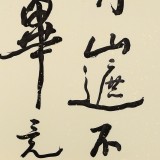 青山遮不
畢竟